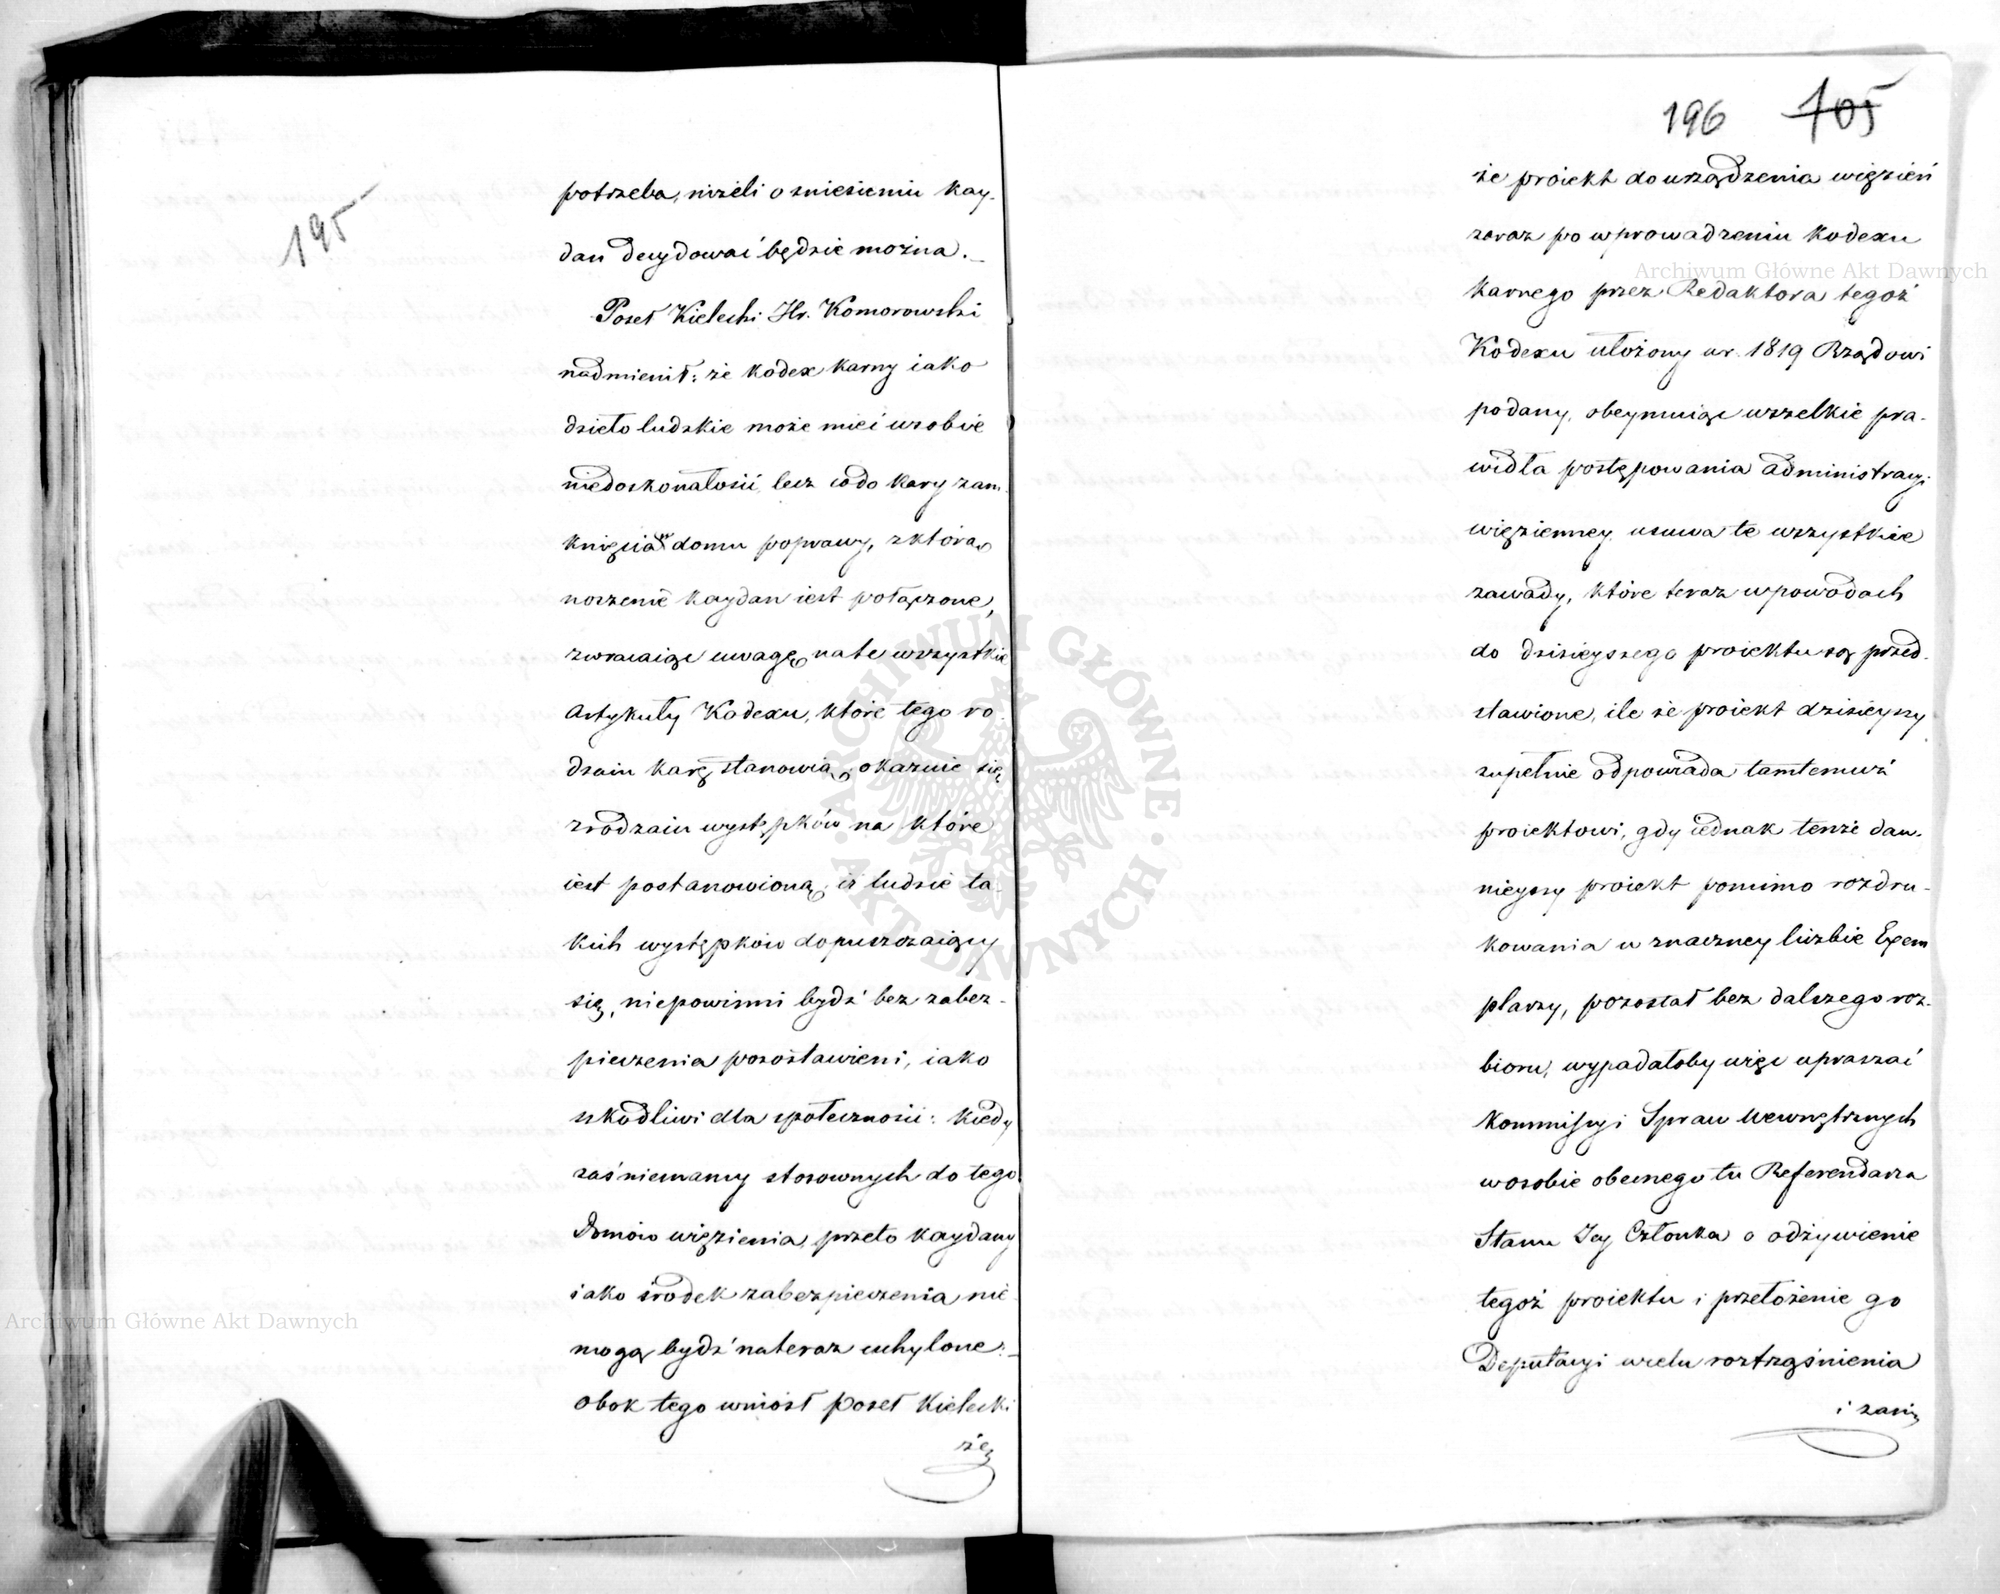 195
potrzeba, niżeli o zniesieniu kay-
dan decydować będzie można._
Poseł Kielecki Hr. Komorowski
nadmienił: że kodex karny iako
dzieło ludzkie może mieć w sobie
niedoskonałości, lecz codo kary zam-
knięcia w domu poprawy, z którą
noszenie kaydan iest połączone,
zwracaiąc uwagę na te wszystkie
Artykuły Kodexu, które tego ro-
dzaiu karę stanowią, okazuie się
z rodzaiu występków na które
iest postanowioną, iż ludzie ta-
kich występków dopuszczaiący
się, niepowinni bydź bez zabez-
pieczenia pozostawieni, iako
szkodliwi dla społeczności: kiedy
zaś niemamy stosownych do tego
Domów więzienia, przeto kaydany
iako środek zabezpieczenia nie
mogą bydź na teraz uchylone._
obok tego wniósł poseł Kielecki
że
196 105
że proiekt do urządzenia więzień
zaraz po wprowadzeniu kodexu
karnego przez Redaktora tegoż
Kodexu ułożony w r. 1819 Rządowi
podany, obeymuiąc wszelkie pra-
widła postępowania administracyi
więzienney usuwa te wszystkie
zawady, które teraz w powodach
do dzisieyszego proiektu są przed-
stawione, ile że proiekt dzisieyszy
zupełnie odpowiada tamtemuż
proiektowi, gdy iednak tenże daw-
nieyszy proiekt pomimo rozdru-
kowania w znaczney liczbie Exem
plarzy, pozostał bez dalszego roz-
bioru, wypadałoby więc upraszać
Kommissyi Spraw Wewnętrznych
w osobie obecnego tu Referendarza
Stanu Jey Członka o odżywienie
tegoż proiektu i przełożenie go
Deputacyi w celu roztrząśnienia
i zasię
Archiwum Główne Akt Dawnych
Archiwum Główne Akt Dawnych
· ARCHIWUM GŁÓWNE · AKT DAWNYCH